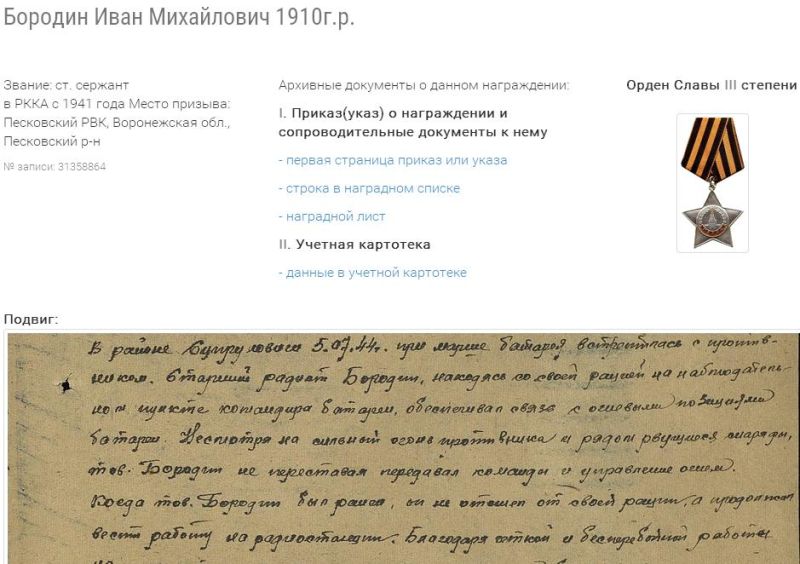 Бородин Иван Михайлович 1910г.р.
Звание: ст. сержант
в РККА с 1941 года Место призыва:
Песковский РВК, Воронежская обл.,
Песковский р-н
№ записи: 31358864
Архивные документы о данном награждении:
I. Приказ(указ) о награждении и
сопроводительные документы к нему
- первая страница приказ или указа
- строка в наградном списке
- наградной лист
II. Учетная картотека
- данные в учетной картотеке
Орден Славы III степени
Подвиг:
В районе 5.07.44г. при марше батарея встретилась с против-
ником. Старший радист Бородин, находясь со своей рацией на наблюдатель-
ном пункте командира батареи, обеспечивал связь с огневыми позициями
батареи. Несмотря на сильный огонь противника и рядом рвущиеся снаряды,
тов. Бородин не переставая передавал команды и управление огнем.
Когда тов. Бородин был ранен, он не отошел от своей рации, а продолжал
вести работу на радиостанции. Благодаря четкой и бесперебойной работы